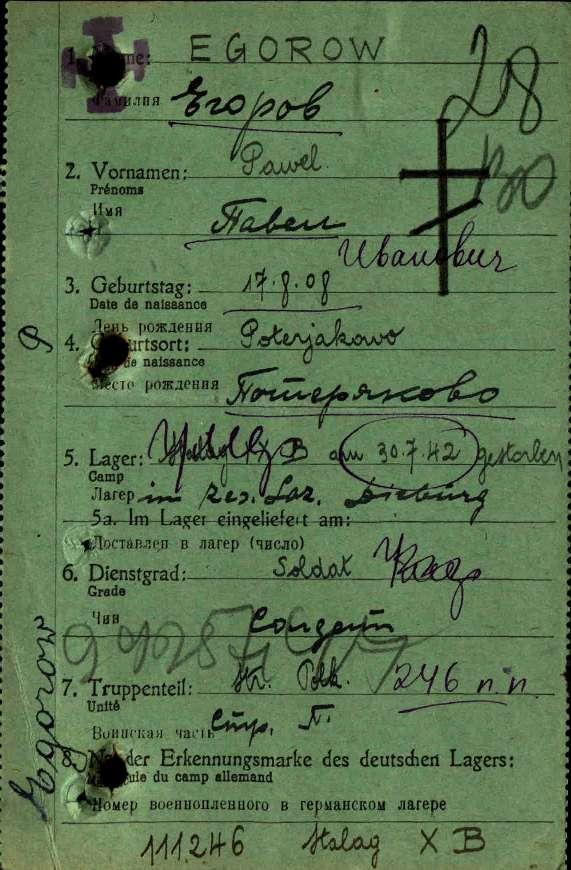 1. Name: EGOROW
28
Фамилия Егоров
2. Vornamen: Pawel
Prénoms
Имя
Павел
Иванович
3. Geburtstag: 17.8.08
Date de naissance
День рождения
4. Geburtsort: Poterjakowo
Lieu de naissance
Место рождения Потеряково
5. Lager: B am 30.7.42 gestorben
Camp
Лагерь im Res. Laz. Dieburg
5a. Im Lager eingeliefert am:
Доставлен в лагерь (число)
6. Dienstgrad: Soldat
Grade
Чин Солдат
7. Truppenteil: Str. Polk. 246 п.п.
Unité
Воинская часть Стр. П.
8. No. der Erkennungsmarke des deutschen Lagers:
Matricule du camp allemand
Номер военнопленного в германском лагере
111246 Stalag X B
Egorow